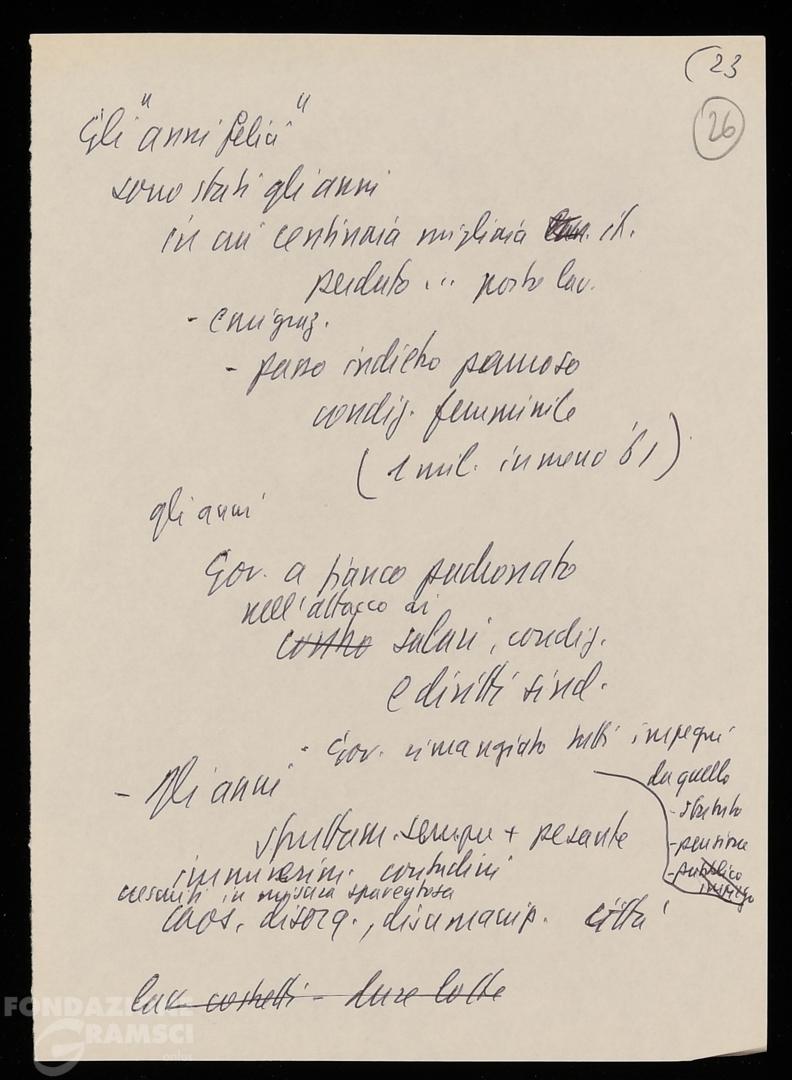 (23
26
Gli "anni felici"
sono stati gli anni
in cui centinaia migliaia it.
perduto ... posto lav.
- emigraz.
- passo indietro pauroso
condiz. femminile
(1 mil. in meno '61)
gli anni
Gov. a fianco padronato
nell'attacco ai
contro salari, condiz.
e diritti sind.
- Gov. rimangiato tutti impegni
da quello
- statuto
- pensione
- pubblico
impiego
- Gli anni
sfruttam. sempre + pesante
immiserim. contadini
crescenti in misura spaventosa
caos, disorg., disumanip. città
lav. costretti - dure lotte
FONDAZIONE
GRAMSCI
onlus